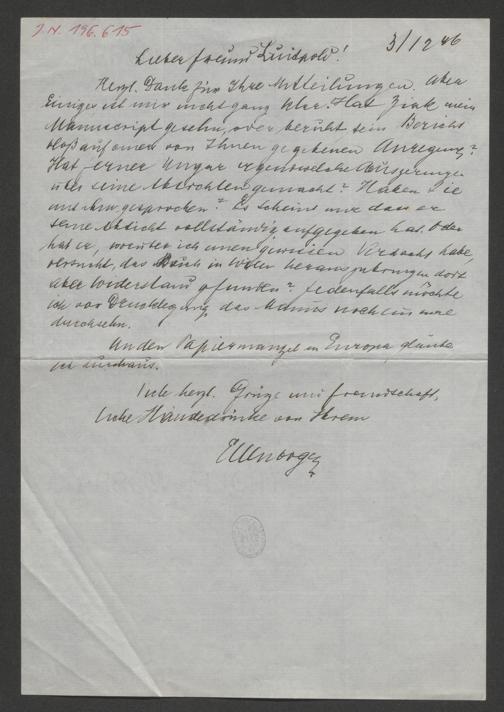 I.N. 196.615
3/12 46
Lieber Freund Luitpold!
Herzl. Dank für Ihre Mitteilungen. Aber
Einiges ist mir nicht ganz klar. Hat Zink mein
Manuscript gesehn, oder beruht sein Bericht
bloß auf einer von Ihnen gegebenen Anregung?
Hat ferner Ungar irgendwelche Äusserungen
über seine Absichten gemacht? Haben Sie
mit ihm gesprochen? Es scheint mir dass er
seine Absicht vollständig aufgegeben hat. Oder
hat er, worüber ich einen gewissen Verdacht habe,
versucht, das Buch in Wien herauszubringen dort
aber Widerstand gefunden? Jedenfalls möchte
ich vor Drucklegung das Manus noch ein mal
durchsehn.
An den Papiermangel in Europa glaube
ich durchaus.
Viele herzl. Grüsse und freundschaft-
liche Händedrücke von Ihrem
Ellenbogen